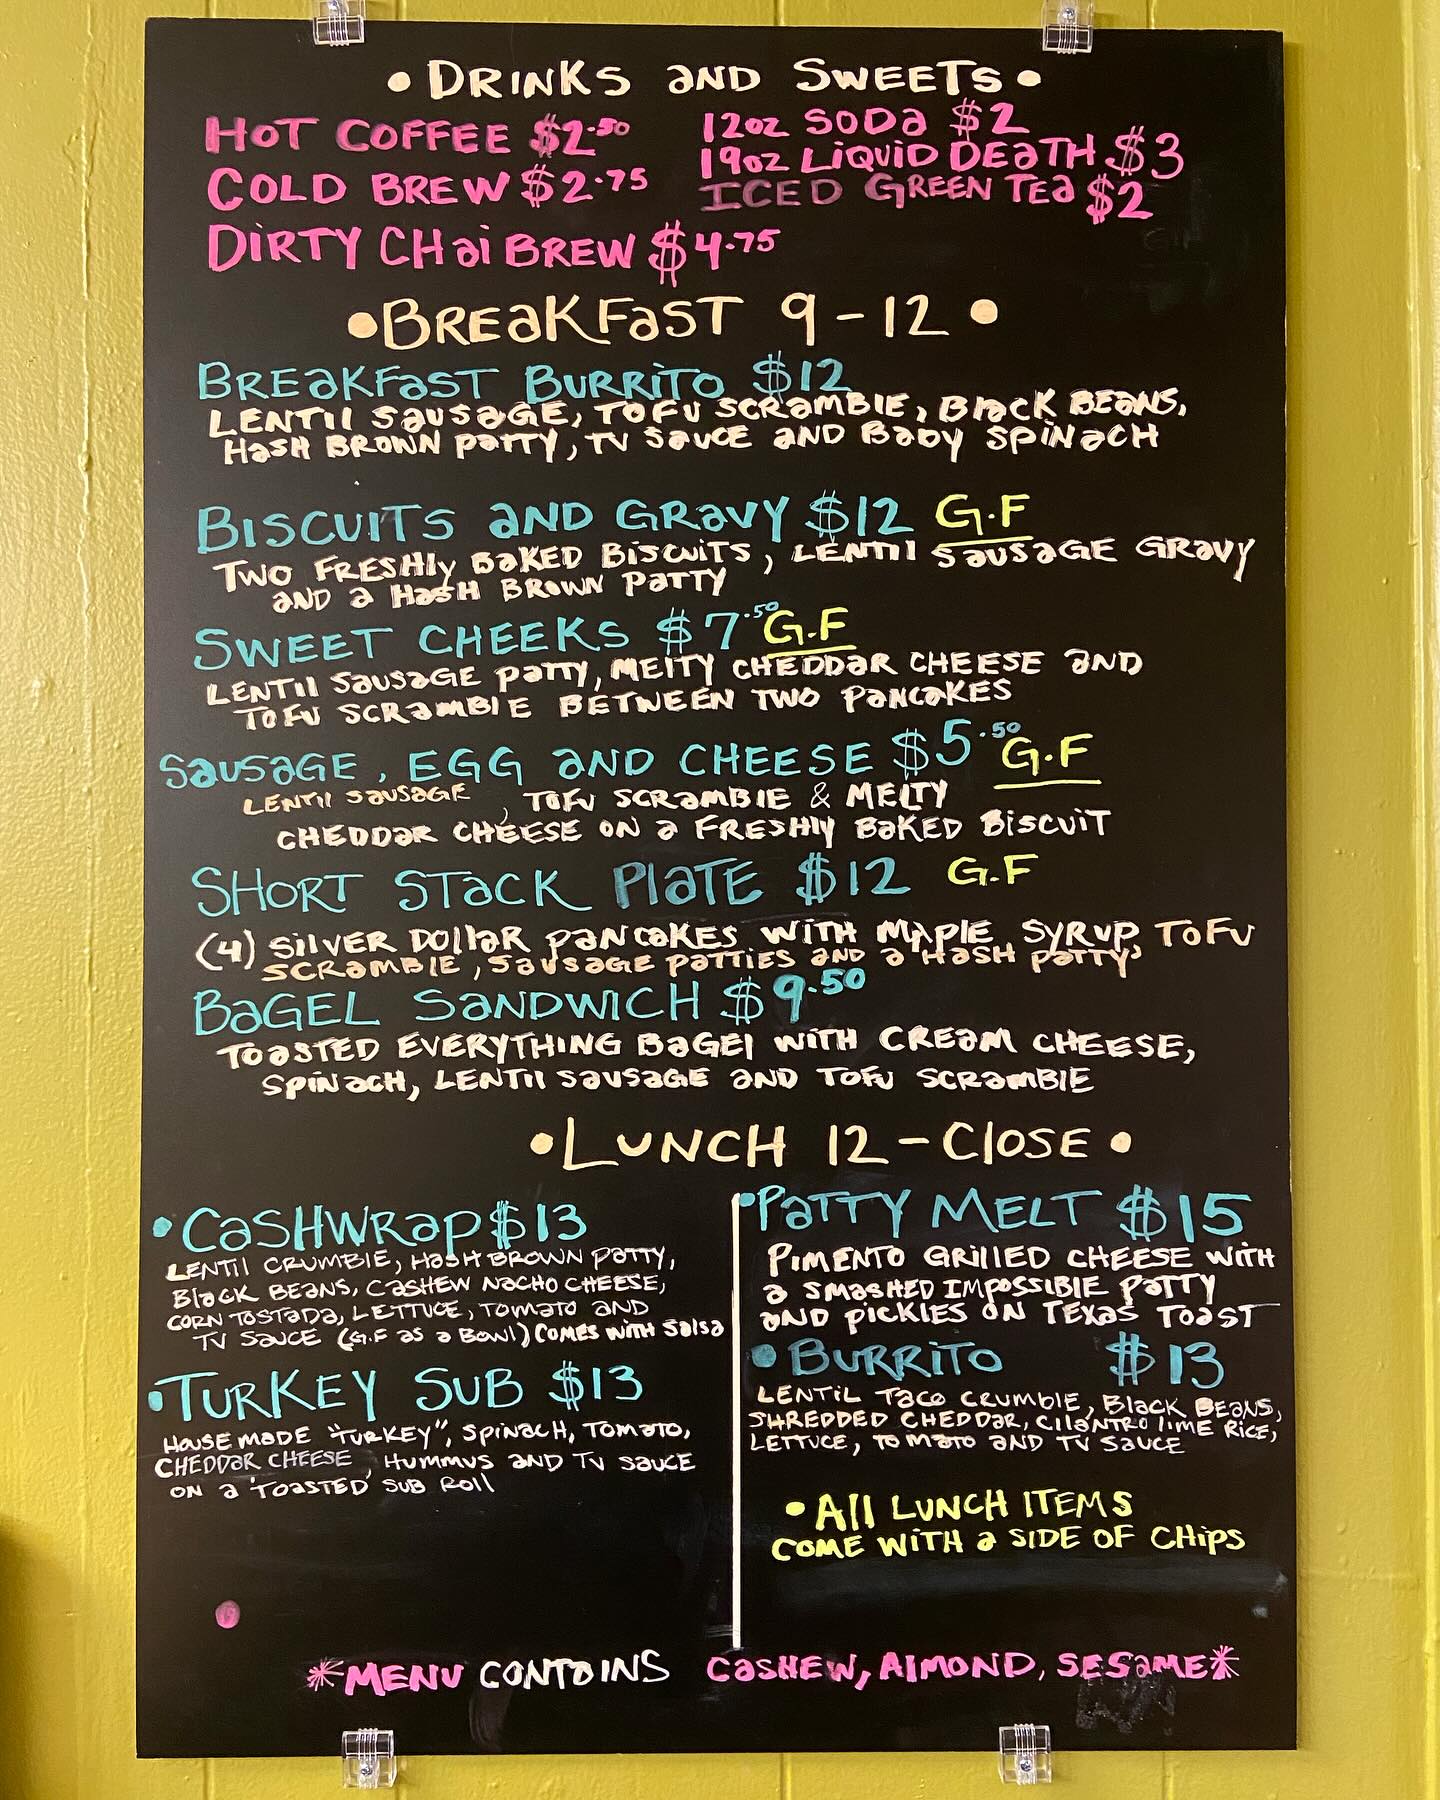 • DRINKS AND SWEETS •
HOT COFFEE $2.50
COLD BREW $2.75
DIRTY CHAI BREW $4.75
12oz SODA $2
19oz LIQUID DEATH $3
ICED GREEN TEA $2
• BREAKFAST 9-12 •
BREAKFAST BURRITO $12
LENTIL SAUSAGE, TOFU SCRAMBLE, BLACK BEANS,
HASH BROWN PATTY, TV SAUCE AND BABY SPINACH
BISCUITS AND GRAVY $12 G.F
TWO FRESHLY BAKED BISCUITS, LENTIL SAUSAGE GRAVY
AND A HASH BROWN PATTY
SWEET CHEEKS $7.50 G.F
LENTIL SAUSAGE PATTY, MELTY CHEDDAR CHEESE AND
TOFU SCRAMBLE BETWEEN TWO PANCAKES
SAUSAGE, EGG AND CHEESE $5.50 G.F
LENTIL SAUSAGE, TOFU SCRAMBLE & MELTY
CHEDDAR CHEESE ON A FRESHLY BAKED BISCUIT
SHORT STACK PLATE $12 G.F
(4) SILVER DOLLAR PANCAKES WITH MAPLE SYRUP, TOFU
SCRAMBLE, SAUSAGE PATTIES AND A HASH PATTY
BAGEL SANDWICH $9.50
TOASTED EVERYTHING BAGEL WITH CREAM CHEESE,
SPINACH, LENTIL SAUSAGE AND TOFU SCRAMBLE
• LUNCH 12-CLOSE •
• CASHWRAP $13
LENTIL CRUMBLE, HASH BROWN PATTY,
BLACK BEANS, CASHEW NACHO CHEESE,
CORN TOSTADA, LETTUCE, TOMATO AND
TV SAUCE (G.F AS A BOWL) COMES WITH SALSA
• TURKEY SUB $13
HOUSE MADE "TURKEY", SPINACH, TOMATO,
CHEDDAR CHEESE, HUMMUS AND TV SAUCE
ON A TOASTED SUB ROLL
• PATTY MELT $15
PIMENTO GRILLED CHEESE WITH
A SMASHED IMPOSSIBLE PATTY
AND PICKLES ON TEXAS TOAST
• BURRITO $13
LENTIL TACO CRUMBLE, BLACK BEANS,
SHREDDED CHEDDAR, CILANTRO LIME RICE,
LETTUCE, TOMATO AND TV SAUCE
• ALL LUNCH ITEMS
COME WITH A SIDE OF CHIPS
*MENU CONTAINS CASHEW, ALMOND, SESAME*